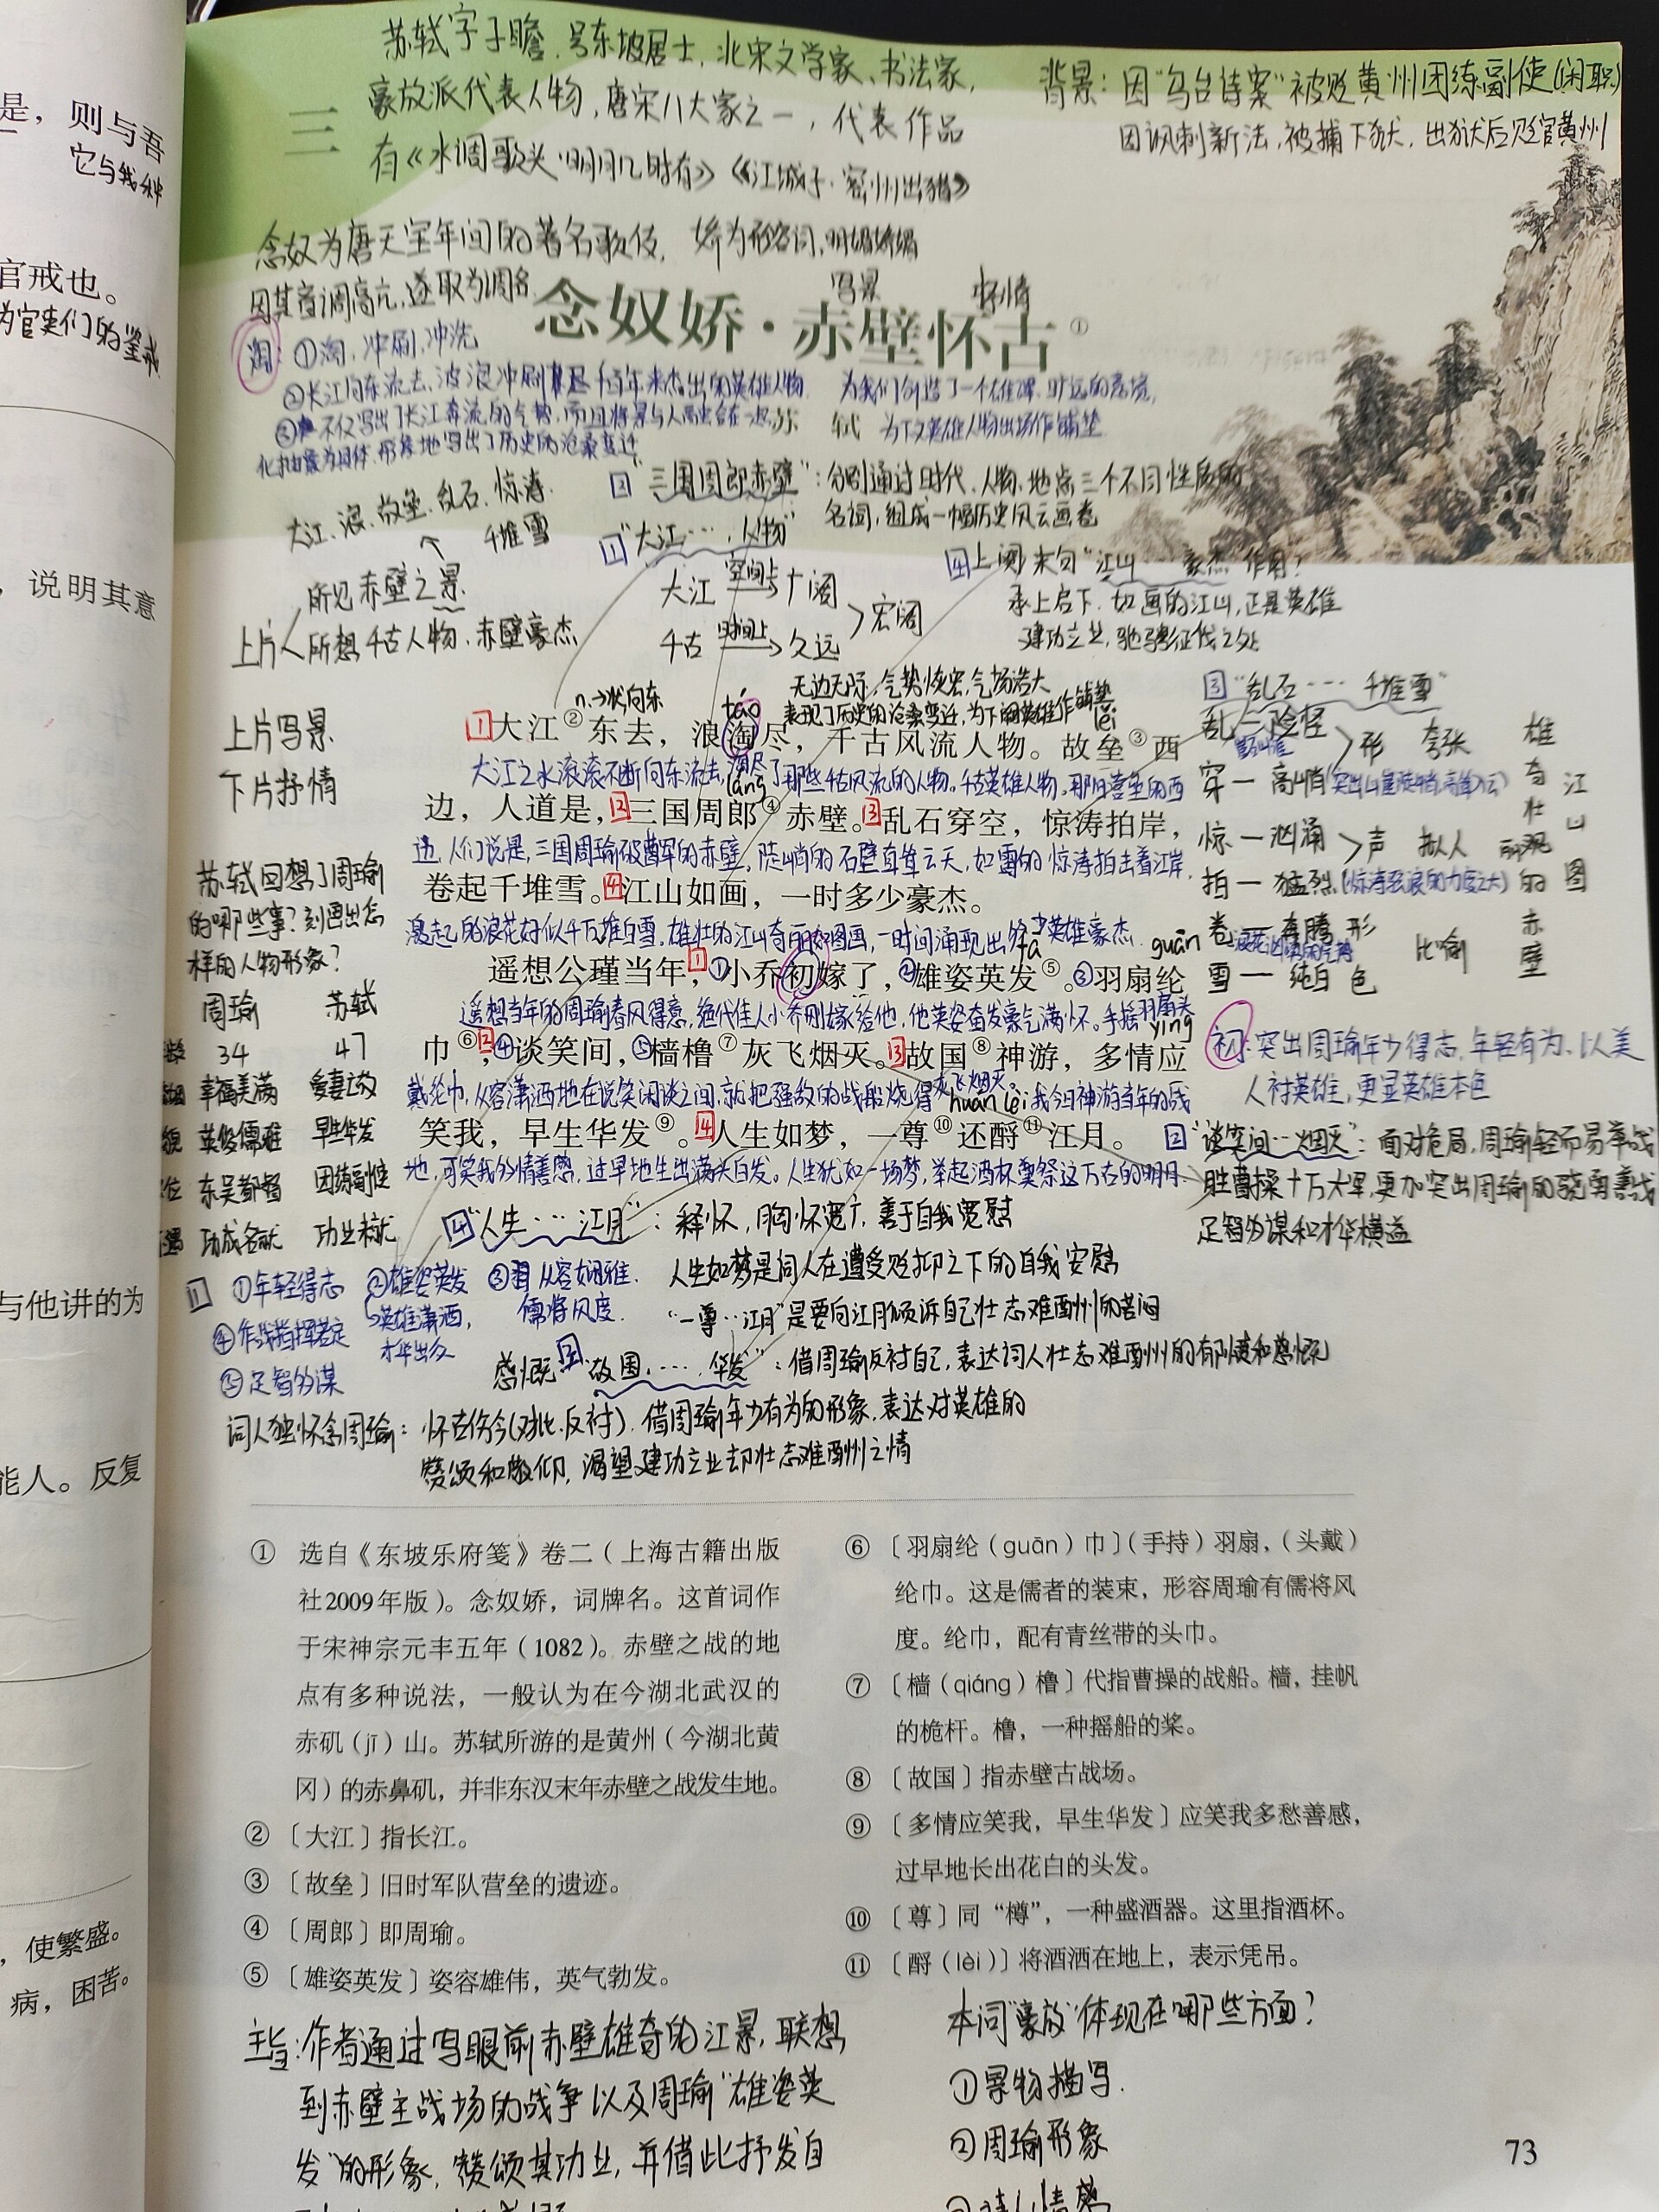 苏轼字子瞻，号东坡居士，北宋文学家、书法家，
豪放派代表人物，唐宋八大家之一，代表作品
有《水调歌头·明月几时有》《江城子·密州出猎》
三
背景：因“乌台诗案”被贬黄州团练副使(闲职)
因讽刺新法，被捕下狱，出狱后贬官黄州
是，则与吾
官戒也。
为官吏们的鉴戒
，说明其意
与他讲的为
能人。反复
，使繁盛。
病，困苦。
念奴为唐天宝年间的著名歌伎，娇为形容词，明媚娇媚
因其音调高亢，遂取为调名
写景 抒情
念奴娇·赤壁怀古①
淘：①淘，冲刷，冲洗
②长江向东流去，波浪冲刷尽千百年来杰出的英雄人物
为我们创造了一个雄浑、旷远的意境，
③不仅写出了长江奔流的气势，而且将景与人融合在一起
为下文英雄人物出场作铺垫
苏 轼
化抽象为具体，形象地写出了历史的沧桑变迁
大江、浪、故垒、乱石、惊涛、
千堆雪
所见赤壁之景
上片 所想千古人物、赤壁豪杰
2“三国周郎赤壁”：分别通过时代、人物、地点三个不同性质的
名词，组成一幅历史风云画卷
1“大江……人物”
大江 空间上 广阔
千古 时间上 久远
宏阔
4上阕末句“江山……豪杰”作用？
承上启下，如画的江山，正是英雄
建功立业，驰骋征伐之处
上片写景
下片抒情
n.→状 向东
táo
无边无际，气势恢宏，气场浩大
表现了历史的沧桑变迁，为下阕英雄作铺垫
lěi
1大江②东去，浪淘尽，千古风流人物。故垒③西
大江之水滚滚不断向东流去，淘尽了那些千古风流的人物。千古英雄人物。那旧营垒的西
láng
边，人道是，2三国周郎④赤壁。3乱石穿空，惊涛拍岸，
边，人们说是，三国周瑜破曹军的赤壁，陡峭的石壁直耸云天，如雷的惊涛拍击着江岸，
卷起千堆雪。4江山如画，一时多少豪杰。
激起的浪花好似千万堆白雪。雄壮的江山奇丽如图画，一时间涌现出多少英雄豪杰.
guān
遥想公瑾当年1，①小乔初嫁了，②雄姿英发⑤。③羽扇纶
遥想当年的周瑜春风得意，绝代佳人小乔刚嫁给他，他英姿奋发豪气满怀。手摇羽扇头
yīng
巾⑥2，④谈笑间，⑤樯橹⑦灰飞烟灭。3故国⑧神游，多情应
戴纶巾，从容潇洒地在说笑闲谈之间，就把强敌的战船烧得灰飞烟灭 我今日神游当年的战
huán lèi
笑我，早生华发⑨。4人生如梦，一尊⑩还酹⑪江月。
地，可笑我多情善感，过早地生出满头白发。人生犹如一场梦，举起酒杯奠祭这万古的明月.
3“乱石……千堆雪”
乱—险怪
穿—高峭(突出山崖陡峭,高耸入云)
形 夸张
惊—汹涌
拍—猛烈(惊涛骇浪的力度之大)
声 拟人
卷—奔腾 形
雪—纯白 色
比喻
雄奇壮丽的赤壁
江山图
初：突出周瑜年少得志，年轻有为，以美
人衬英雄，更显英雄本色
2“谈笑间…烟灭”：面对危局，周瑜轻而易举战
胜曹操十万大军，更加突出周瑜的骁勇善战
足智多谋和才华横溢
苏轼回想了周瑜
的哪些事？刻画出怎
样的人物形象？
周瑜 苏轼
34 47
幸福美满 爱妻亡故
英俊儒雅 早生华发
东吴都督 团练副使
功成名就 功业未就
4“人生……江月”：释怀，胸怀宽广，善于自我宽慰
人生如梦是词人在遭受贬抑之下的自我安慰
“一尊…江月”是要向江月倾诉自己壮志难酬的苦闷
1 ①年轻得志 ②雄姿英发 ③从容娴雅、
英雄潇洒， 儒将风度.
④作战指挥若定 才华出众
⑤足智多谋
感慨 3“故国……华发”：借周瑜反衬自己，表达词人壮志难酬的郁愤和感慨
词人独怀念周瑜：怀古伤今(对比、反衬)，借周瑜年少有为的形象，表达对英雄的
赞颂和敬仰，渴望建功立业却壮志难酬之情
① 选自《东坡乐府笺》卷二（上海古籍出版
社2009年版）。念奴娇，词牌名。这首词作
于宋神宗元丰五年（1082）。赤壁之战的地
点有多种说法，一般认为在今湖北武汉的
赤矶（jī）山。苏轼所游的是黄州（今湖北黄
冈）的赤鼻矶，并非东汉末年赤壁之战发生地。
② 〔大江〕指长江。
③ 〔故垒〕旧时军队营垒的遗迹。
④ 〔周郎〕即周瑜。
⑤ 〔雄姿英发〕姿容雄伟，英气勃发。
⑥ 〔羽扇纶（guān）巾〕（手持）羽扇，（头戴）
纶巾。这是儒者的装束，形容周瑜有儒将风
度。纶巾，配有青丝带的头巾。
⑦ 〔樯（qiáng）橹〕代指曹操的战船。樯，挂帆
的桅杆。橹，一种摇船的桨。
⑧ 〔故国〕指赤壁古战场。
⑨ 〔多情应笑我，早生华发〕应笑我多愁善感，
过早地长出花白的头发。
⑩ 〔尊〕同“樽”，一种盛酒器。这里指酒杯。
⑪ 〔酹（lèi）〕将酒洒在地上，表示凭吊。
主旨：作者通过写眼前赤壁雄奇的江景，联想
到赤壁主战场的战争以及周瑜“雄姿英
发”的形象，赞颂其功业，并借此抒发自
本词“豪放”体现在哪些方面？
①景物描写.
②周瑜形象
73